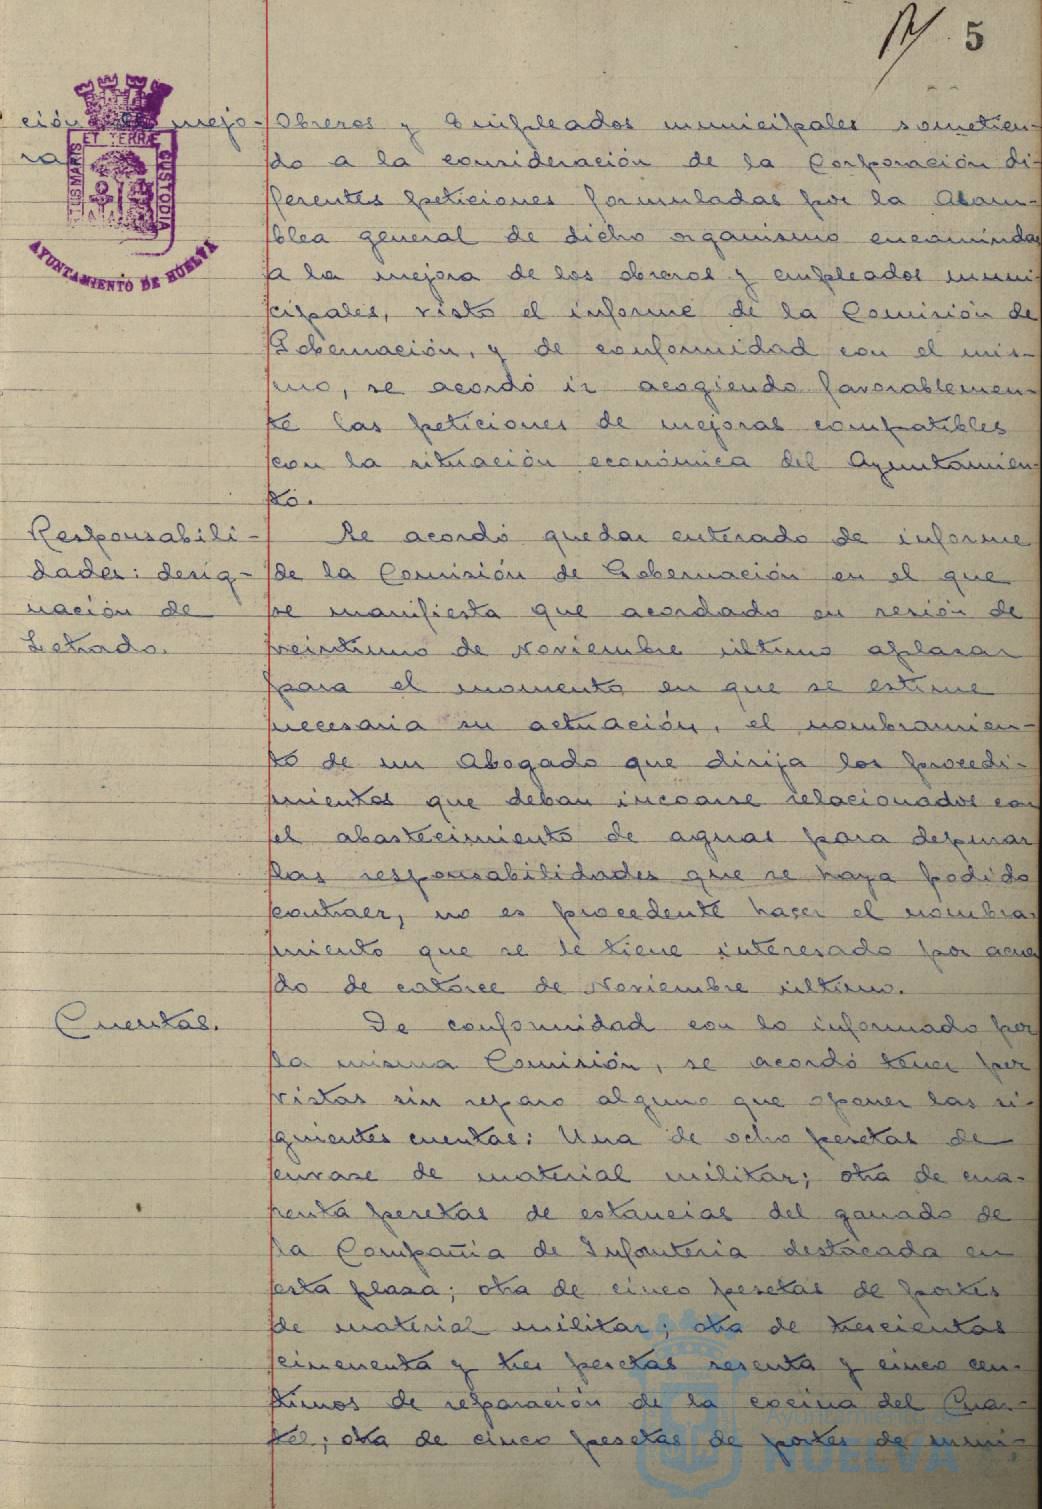 5
ción de mejo-
ras
PORTUS MARIS ET TERRÆ CUSTODIA
AYUNTAMIENTO DE HUELVA
Obreros y Empleados municipales sometien-
do a la consideración de la Corporación di-
ferentes peticiones formuladas por la Asam-
blea general de dicho organismo encaminadas
a la mejora de los obreros y empleados muni-
cipales, visto el informe de la Comisión de
Gobernación, y de conformidad con el mis-
mo, se acordó ir acogiendo favorablemen-
te las peticiones de mejoras compatibles
con la situación económica del Ayuntamien-
to.
Responsabili-
dades: desig-
nación de
Letrado.
Se acordó quedar enterado de informe
de la Comisión de Gobernación en el que
se manifiesta que acordado en sesión de
veintiuno de Noviembre último aplazar
para el momento en que se estime
necesaria su actuación, el nombramien-
to de un Abogado que dirija los procedi-
mientos que deban incoarse relacionados con
el abastecimiento de aguas para depurar
las responsabilidades que se haya podido
contraer, no es procedente hacer el nombra-
miento que se le tiene interesado por acuer
do de catorce de Noviembre último.
Cuentas.
De conformidad con lo informado por
la misma Comisión, se acordó tener por
vistas sin reparo alguno que oponer las si-
guientes cuentas: Una de ocho pesetas de
envase de material militar; otra de cua-
renta pesetas de estancias del ganado de
la Compañia de Infanteria destacada en
esta plaza; otra de cinco pesetas de portes
de material militar; otra de trescientas
cincuenta y tres pesetas sesenta y cinco cen-
timos de reparación de la cocina del Cuar-
tel; otra de cinco pesetas de portes de muni-
Ayuntamiento de
HUELVA